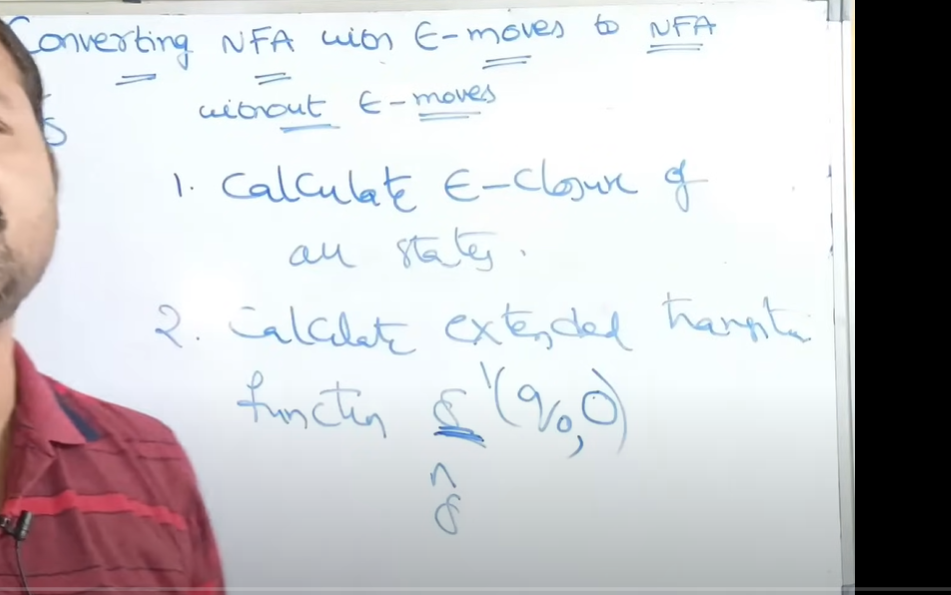 Converting NFA with ε-moves to NFA
without ε-moves
1. Calculate ε-closure of
all states.
2. Calculate extended transition
function δ'(q₀,0)
δ̂